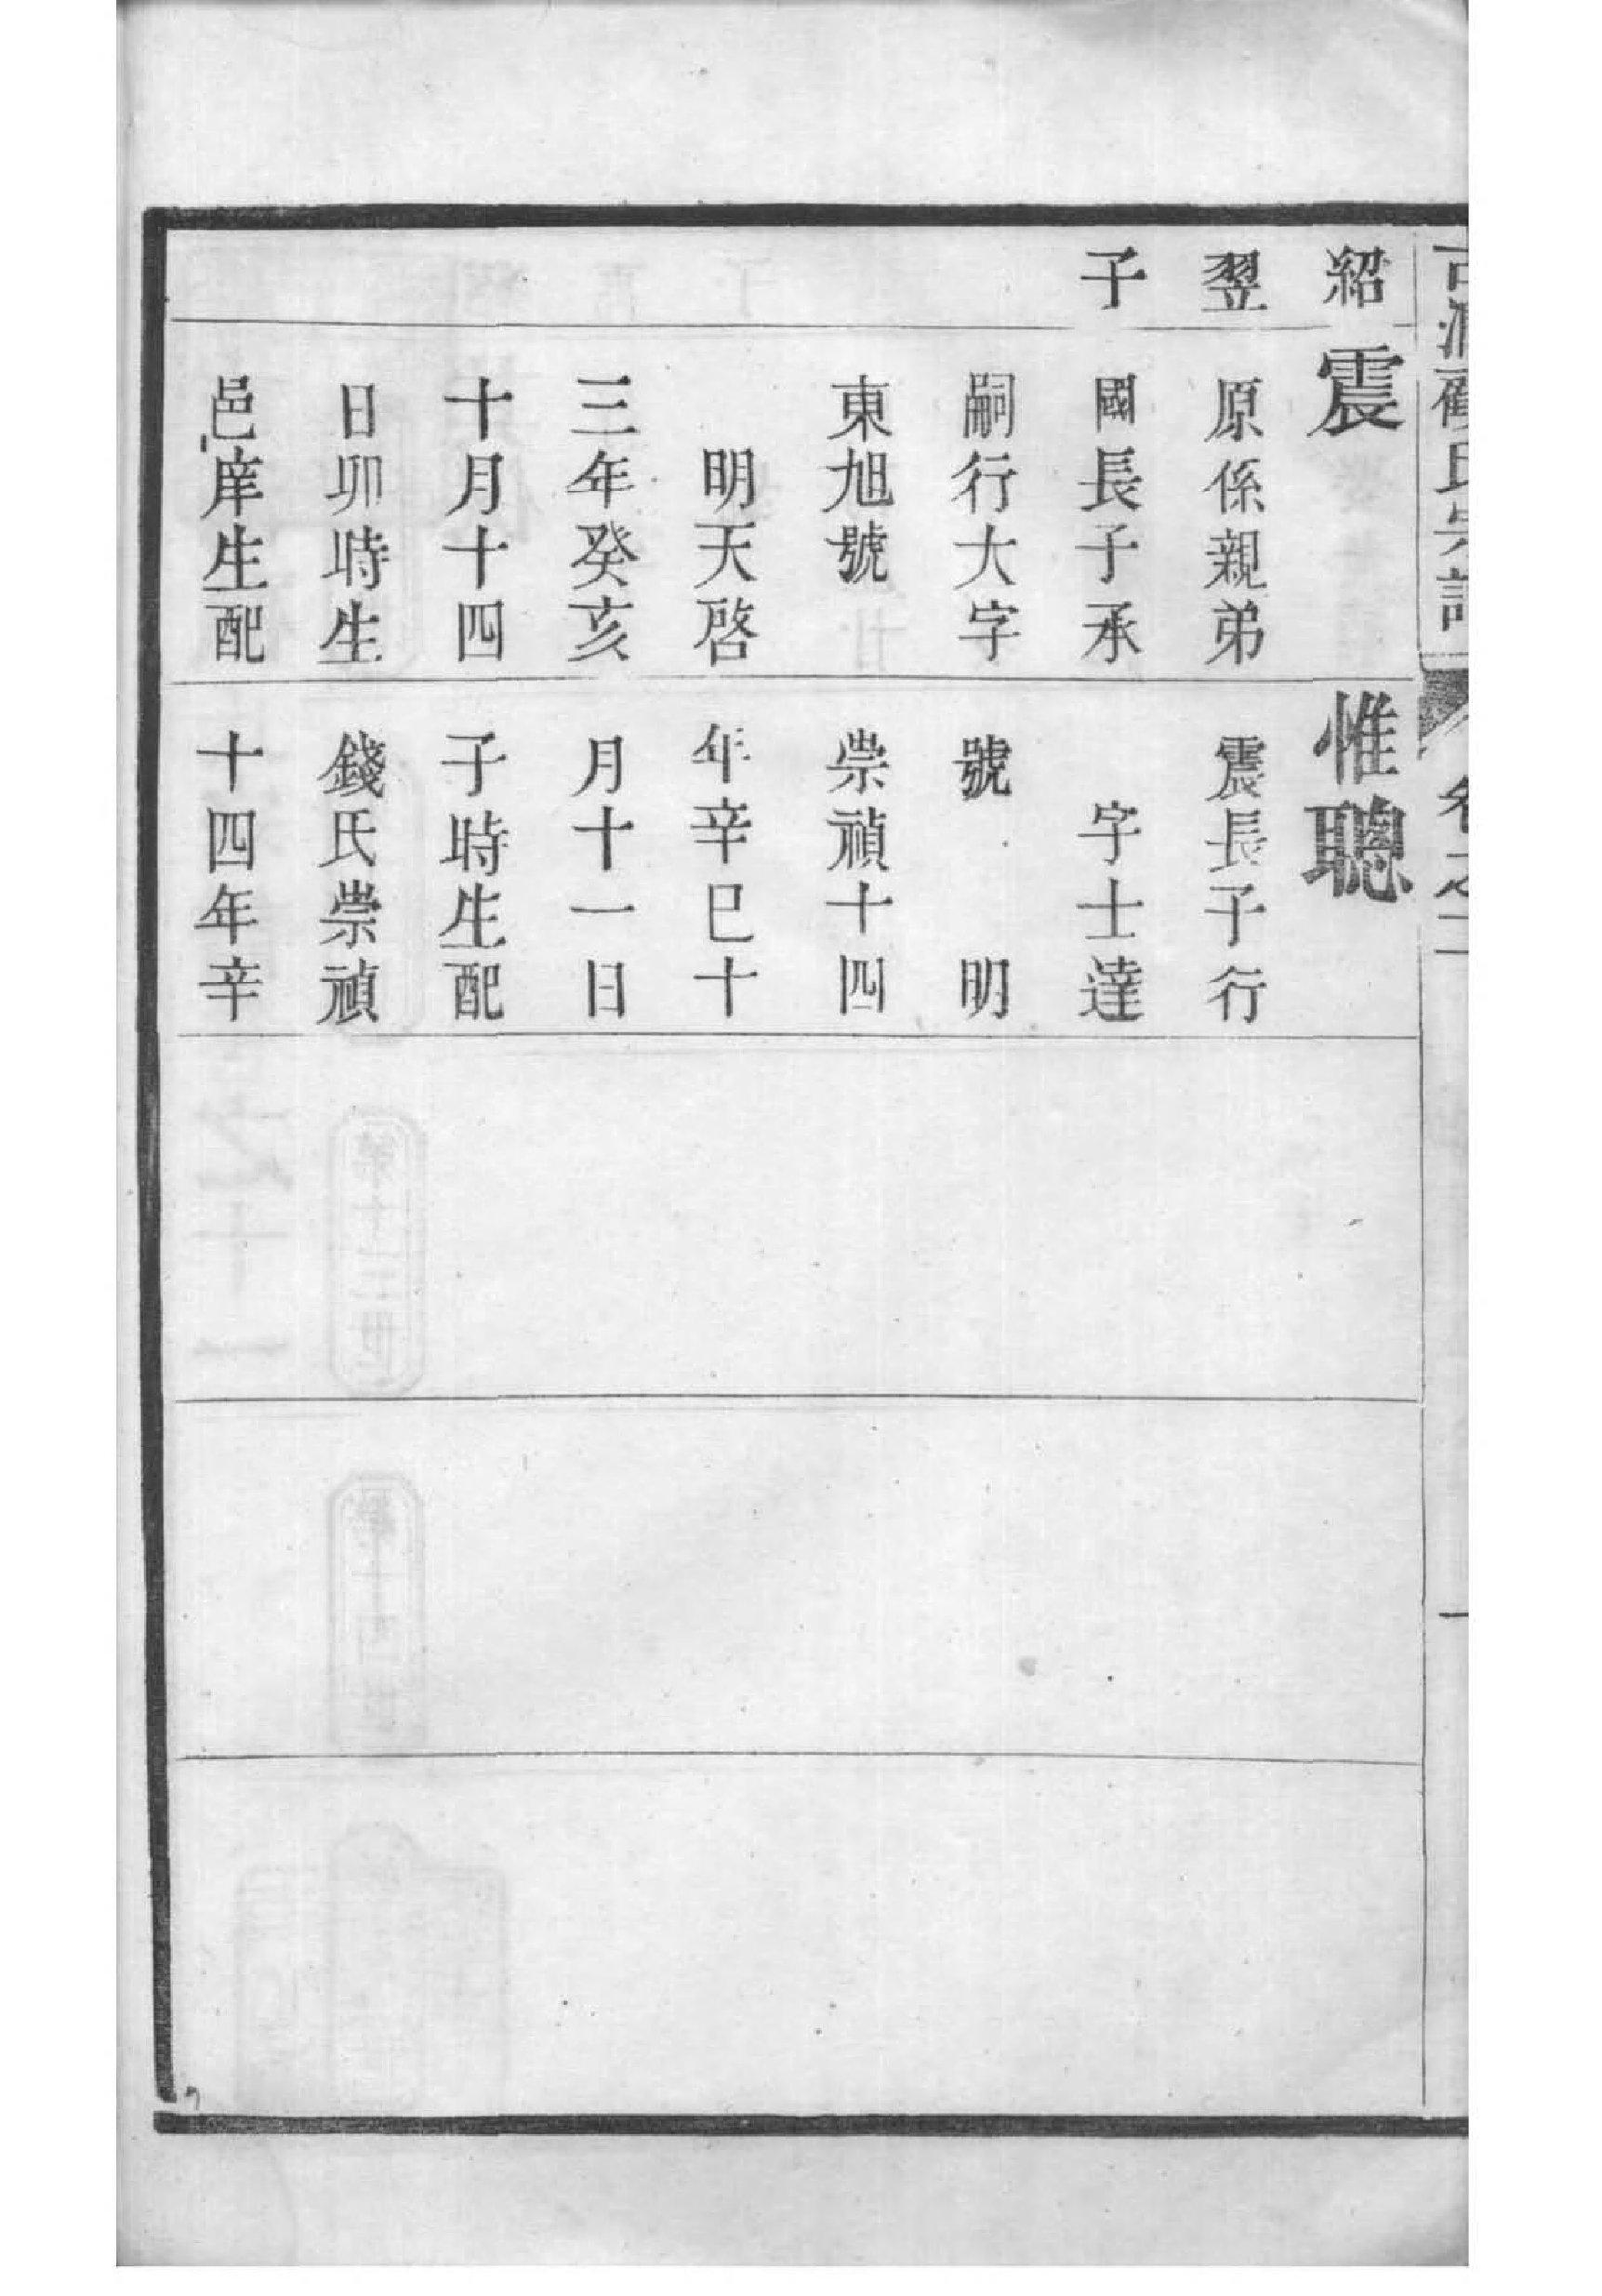 紹
翌
子
震
原係親弟
國長子承
嗣行大字
東旭號
明天啓
三年癸亥
十月十四
日卯時生
邑庠生配
惟聰
震長子行
字士達
號 明
崇禎十四
年辛巳十
月十一日
子時生配
錢氏崇禎
十四年辛